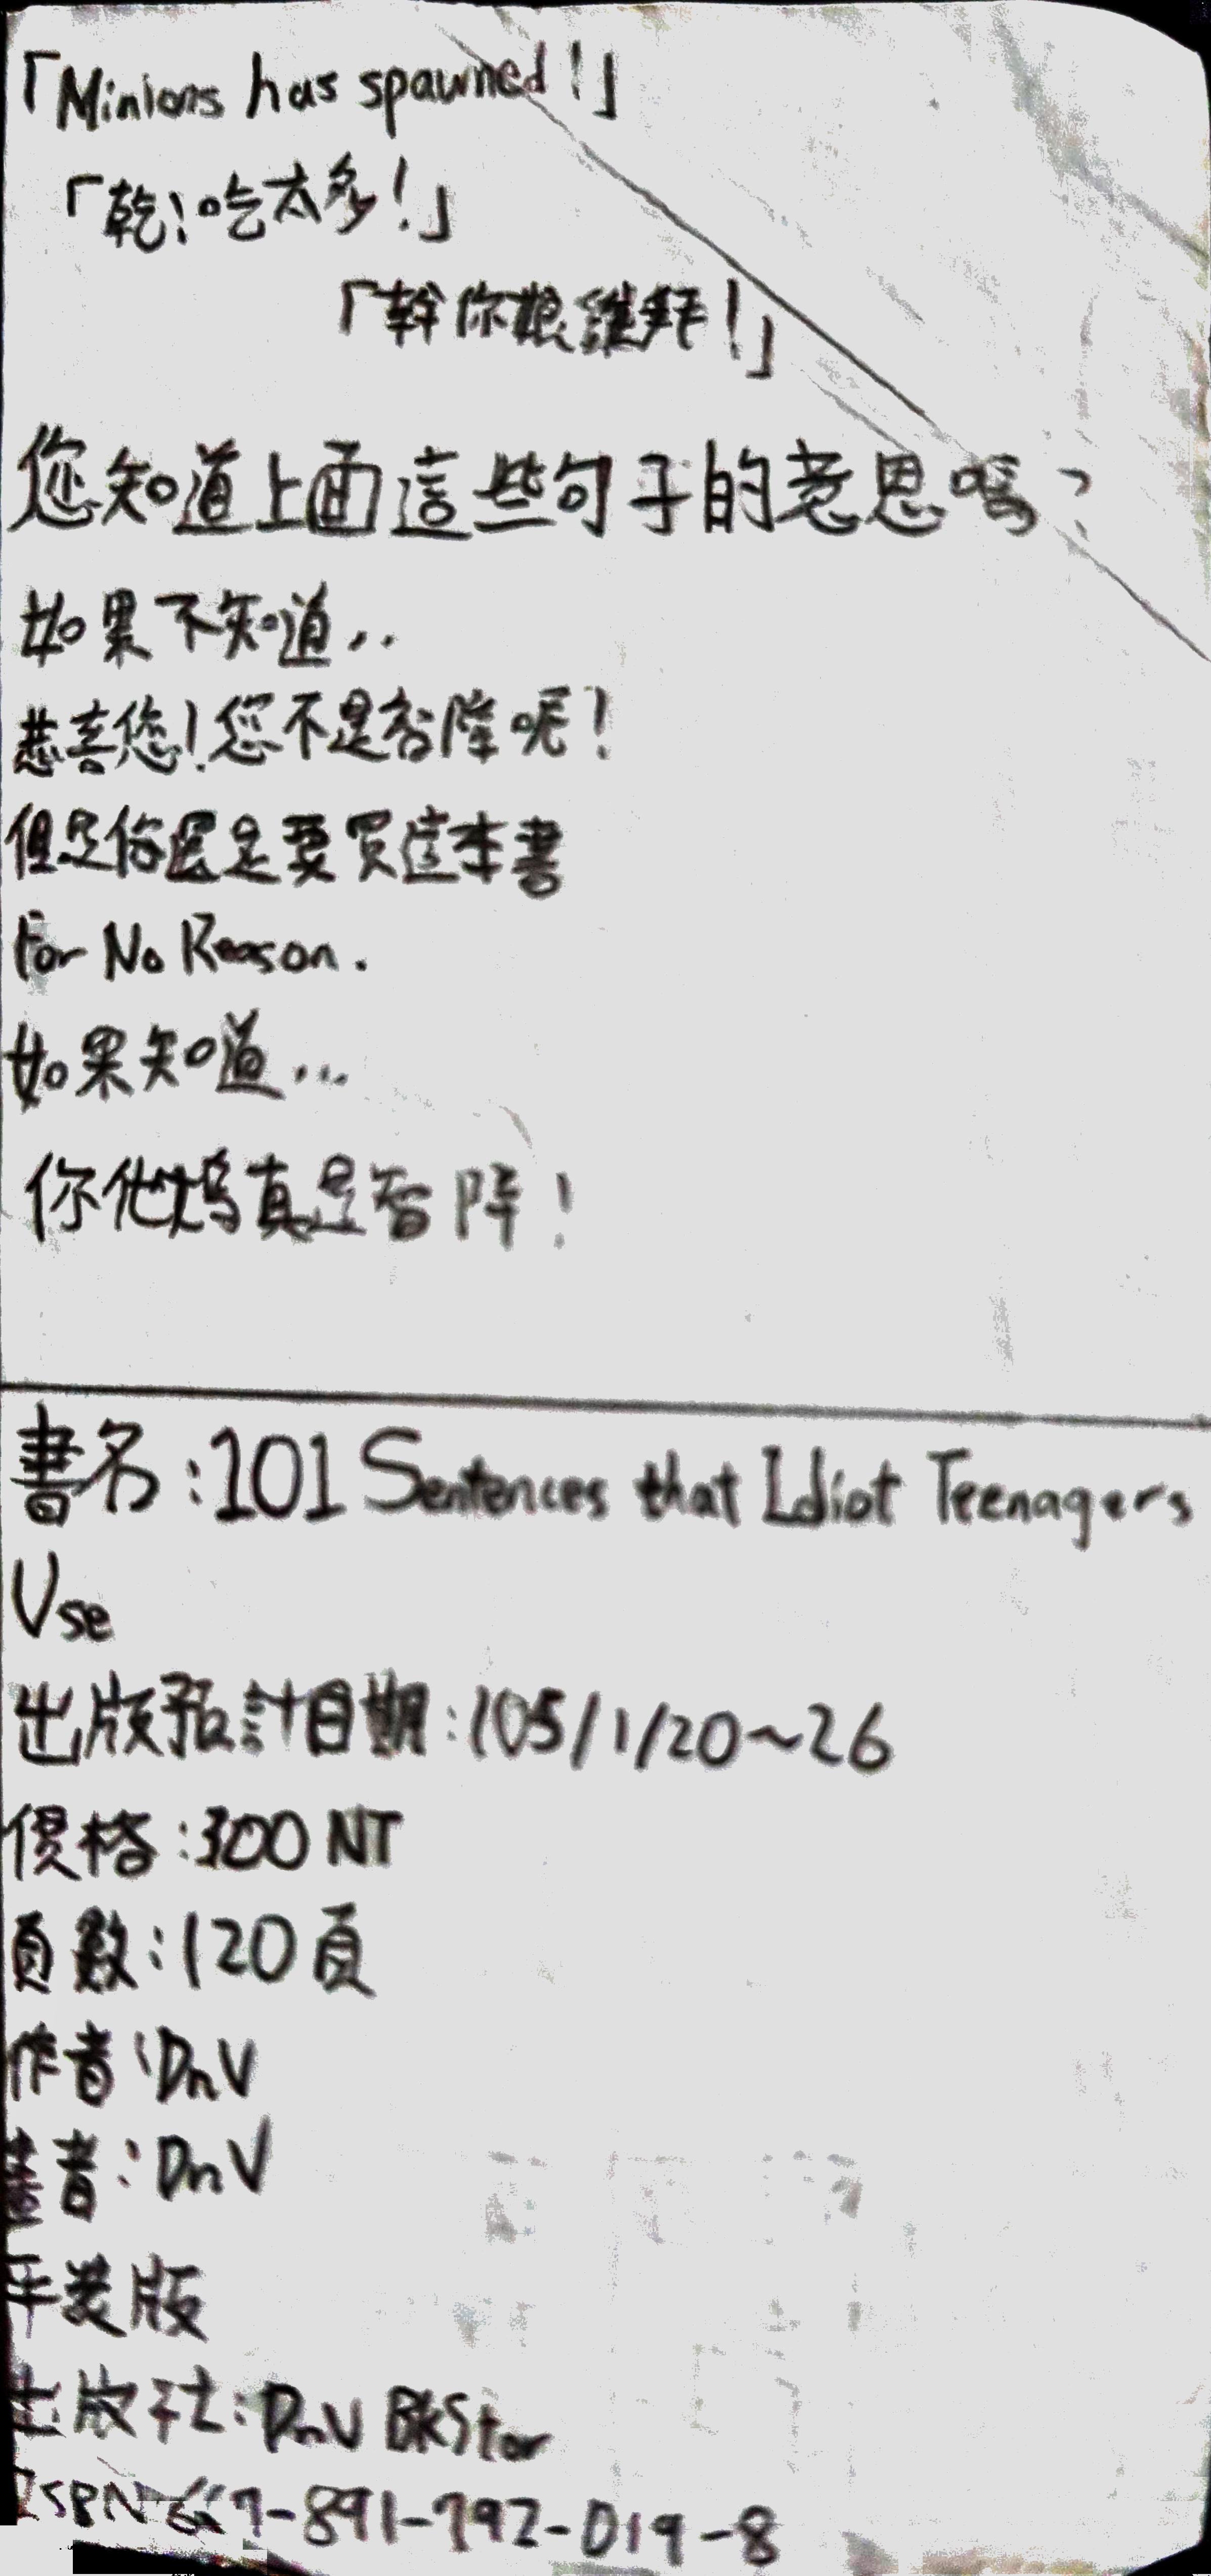 「Minions has spawned!」
「乾!吃太多!」
「幹你很
!」
您知道上面這些句子的意思嗎?
如果不知道..
恭喜您!您不是智障呢!
但是你還是要買這本書
For No Reason.
如果知道...
你他媽真是智障!
書名:101 Sentences that Idiot Teenagers
Use
出版預計日期:105/1/20~26
價格:300 NT
頁數:120頁
作者:DnV
著者:DnV
平裝版
出版社:DnV BkStor
ISBN
7-891-792-019-8